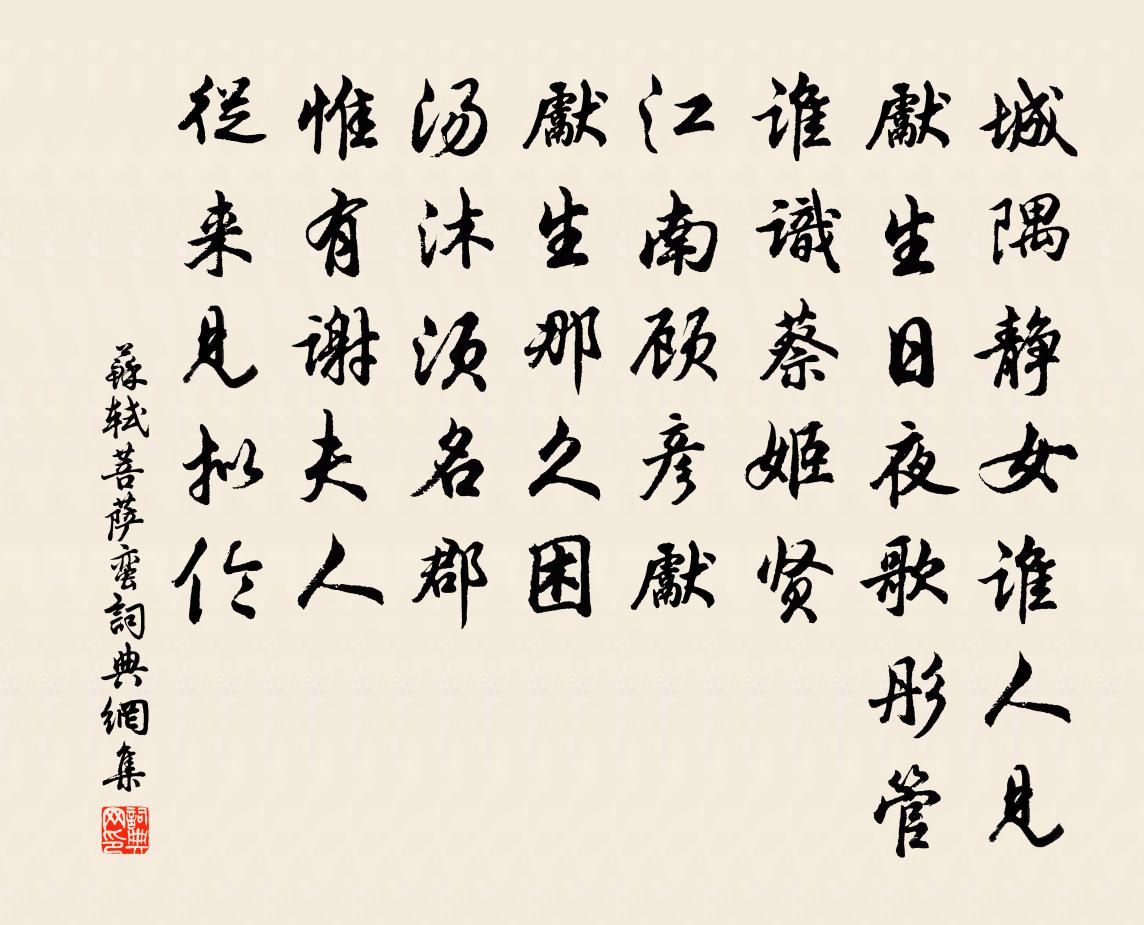 城隅静女谁人見
獻生日夜歌彤管
谁識蔡姬贤
江南顾彦獻
獻生那久困
湯沐须名郡
惟有謝夫人
從来見拟伦
蘇轼菩萨蛮詞典網集
詞典网印